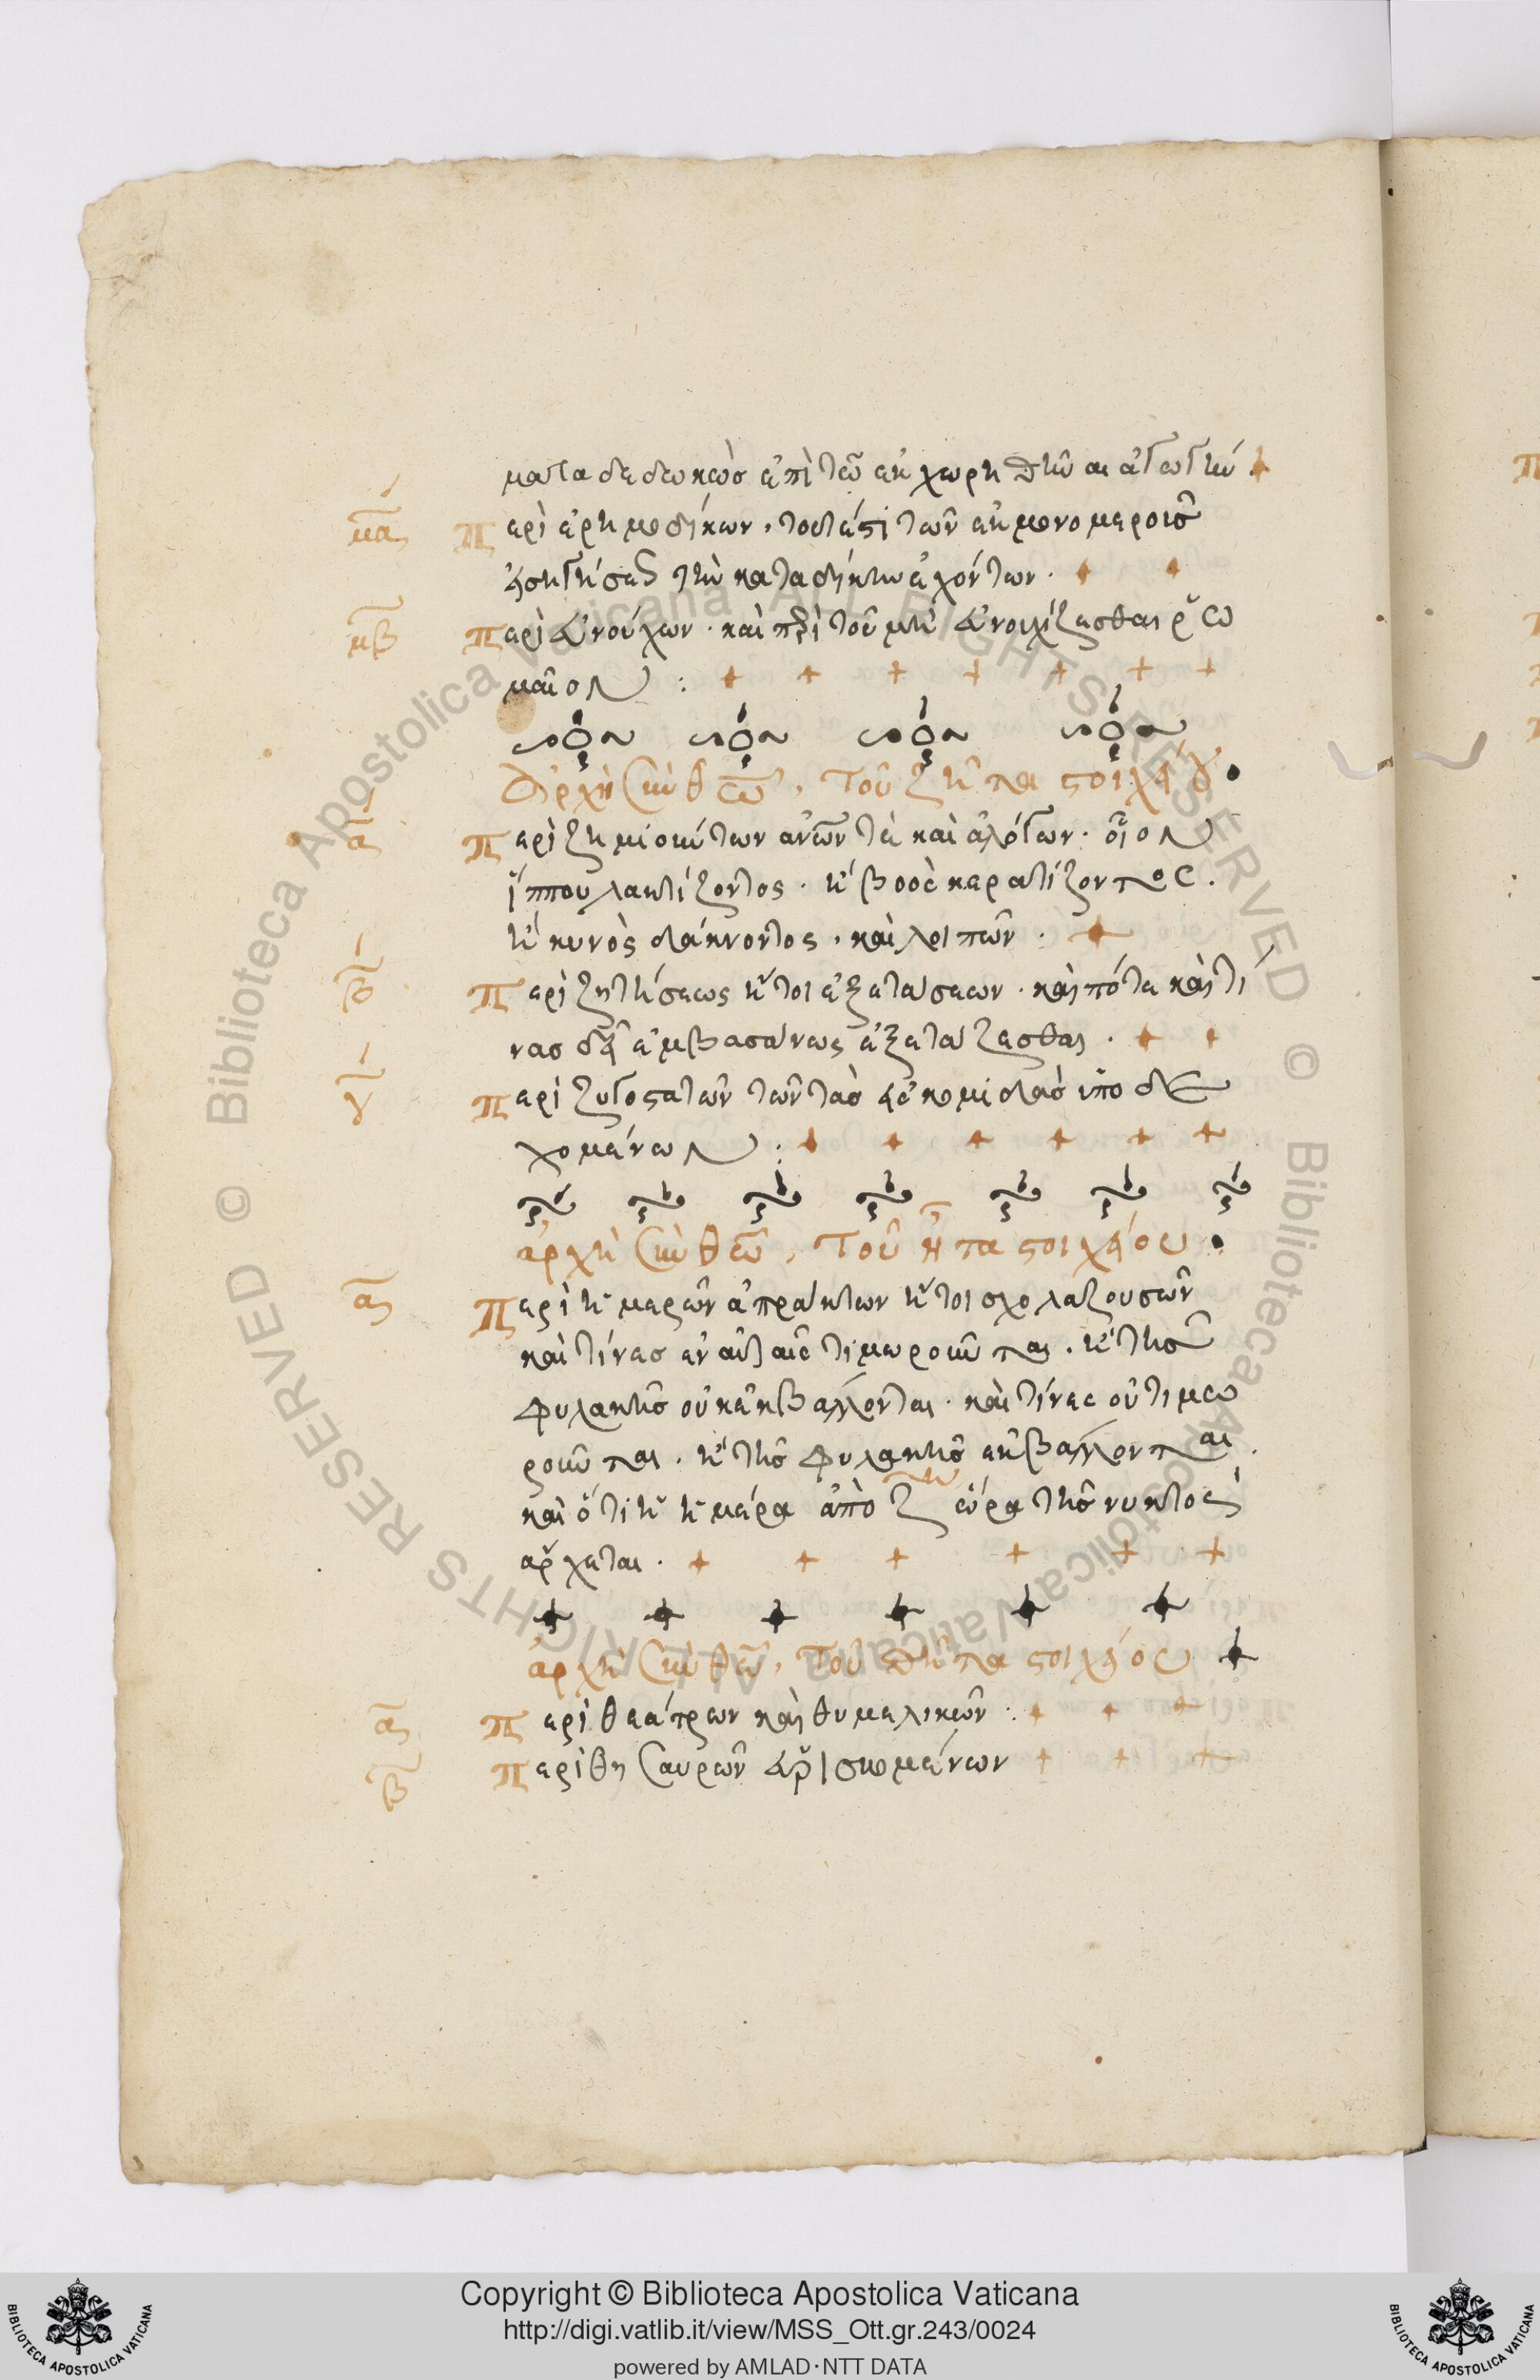 ματα δεδωκὼσ ἐπὶ τῶ ἐκχωρηθῆναι ἀγωγήν
μα Περὶ ἐρημοδίκων, τουτέστι τῶν ἐκ μονομεροῦσ
εἰσηγήσεως τὴν καταδίκην ἐχόντων.
μβ Περὶ εὐνούχων. καὶ περὶ τοῦ μὴ εὐνουχίζεσθαι ῥω
μαῖον :
Ἀρχὴ σὺν θεῶ, τοῦ ζῆτα στοιχείου.
α Περὶ ζημιούντων ἀνων τὲ καὶ ἀλόγων. οἷον
ἵππου λακτίζοντος. ἢ βοὸσ κερατίζοντος.
ἢ κυνὸς δάκνοντος, καὶ λοιπῶν.
β Περὶ ζητήσεως ἤτοι ἐξετάσεων. καὶ πότε καὶ τί
νασ δεῖ ἐμβασάνως ἐξετάζεσθαι.
γ Περὶ ζυγοστατῶν τῶν τὰσ εἰσκομιδὰσ ὑποδε
χομένων :
ἀρχὴ σὺν θεῶ, τοῦ ἦτα στοιχείου.
α Περὶ ἡμερῶν ἀπράκτων ἤτοι σχολαζουσῶν
καὶ τίνεσ ἐν αὐταῖσ τιμωροῦνται. ἢ τῆσ
φυλακῆσ οὐκ ἐκβάλλονται. καὶ τίνεσ οὐ τιμω
ροῦνται. ἢ τῆσ φυλακῆσ ἐκβάλλονται.
καὶ ὅτι ἡ ἡμέρα ἀπὸ ζ ὥρα τῆσ νυκτὸς
ἄρχεται.
ἀρχὴ σὺν θεῶ, τοῦ θῆτα στοιχείου
α Περὶ θεάτρων καὶ θυμελικῶν.
β Περὶ θησαυρῶν εὑρισκομένων
Copyright © Biblioteca Apostolica Vaticana
http://digi.vatlib.it/view/MSS_Ott.gr.243/0024
powered by AMLAD·NTT DATA
BIBLIOTECA APOSTOLICA VATICANA
BIBLIOTECA APOSTOLICA VATICANA
© Biblioteca Apostolica Vaticana ALL RIGHTS RESERVED © Biblioteca Apostolica Vaticana ALL RIGHTS RESERVED